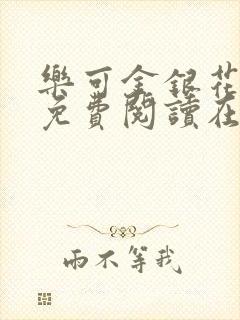 樂可金銀花
免費閱讀在
雨不等我